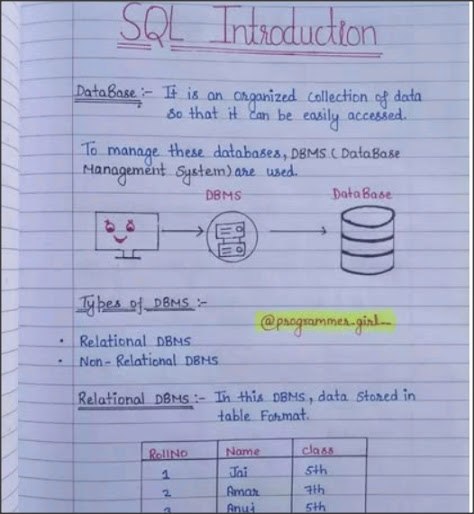 SQL Introduction
DataBase :- It is an organized collection of data
so that it can be easily accessed.
To manage these databases, DBMS (DataBase
Management System) are used.
DBMS DataBase
Types of DBMS :-
@programmer_girl__
• Relational DBMS
• Non-Relational DBMS
Relational DBMS :- In this DBMS, data stored in
table Format.
RollNo Name class
1 Jai 5th
2 Amar 7th
3 Anuj 5th